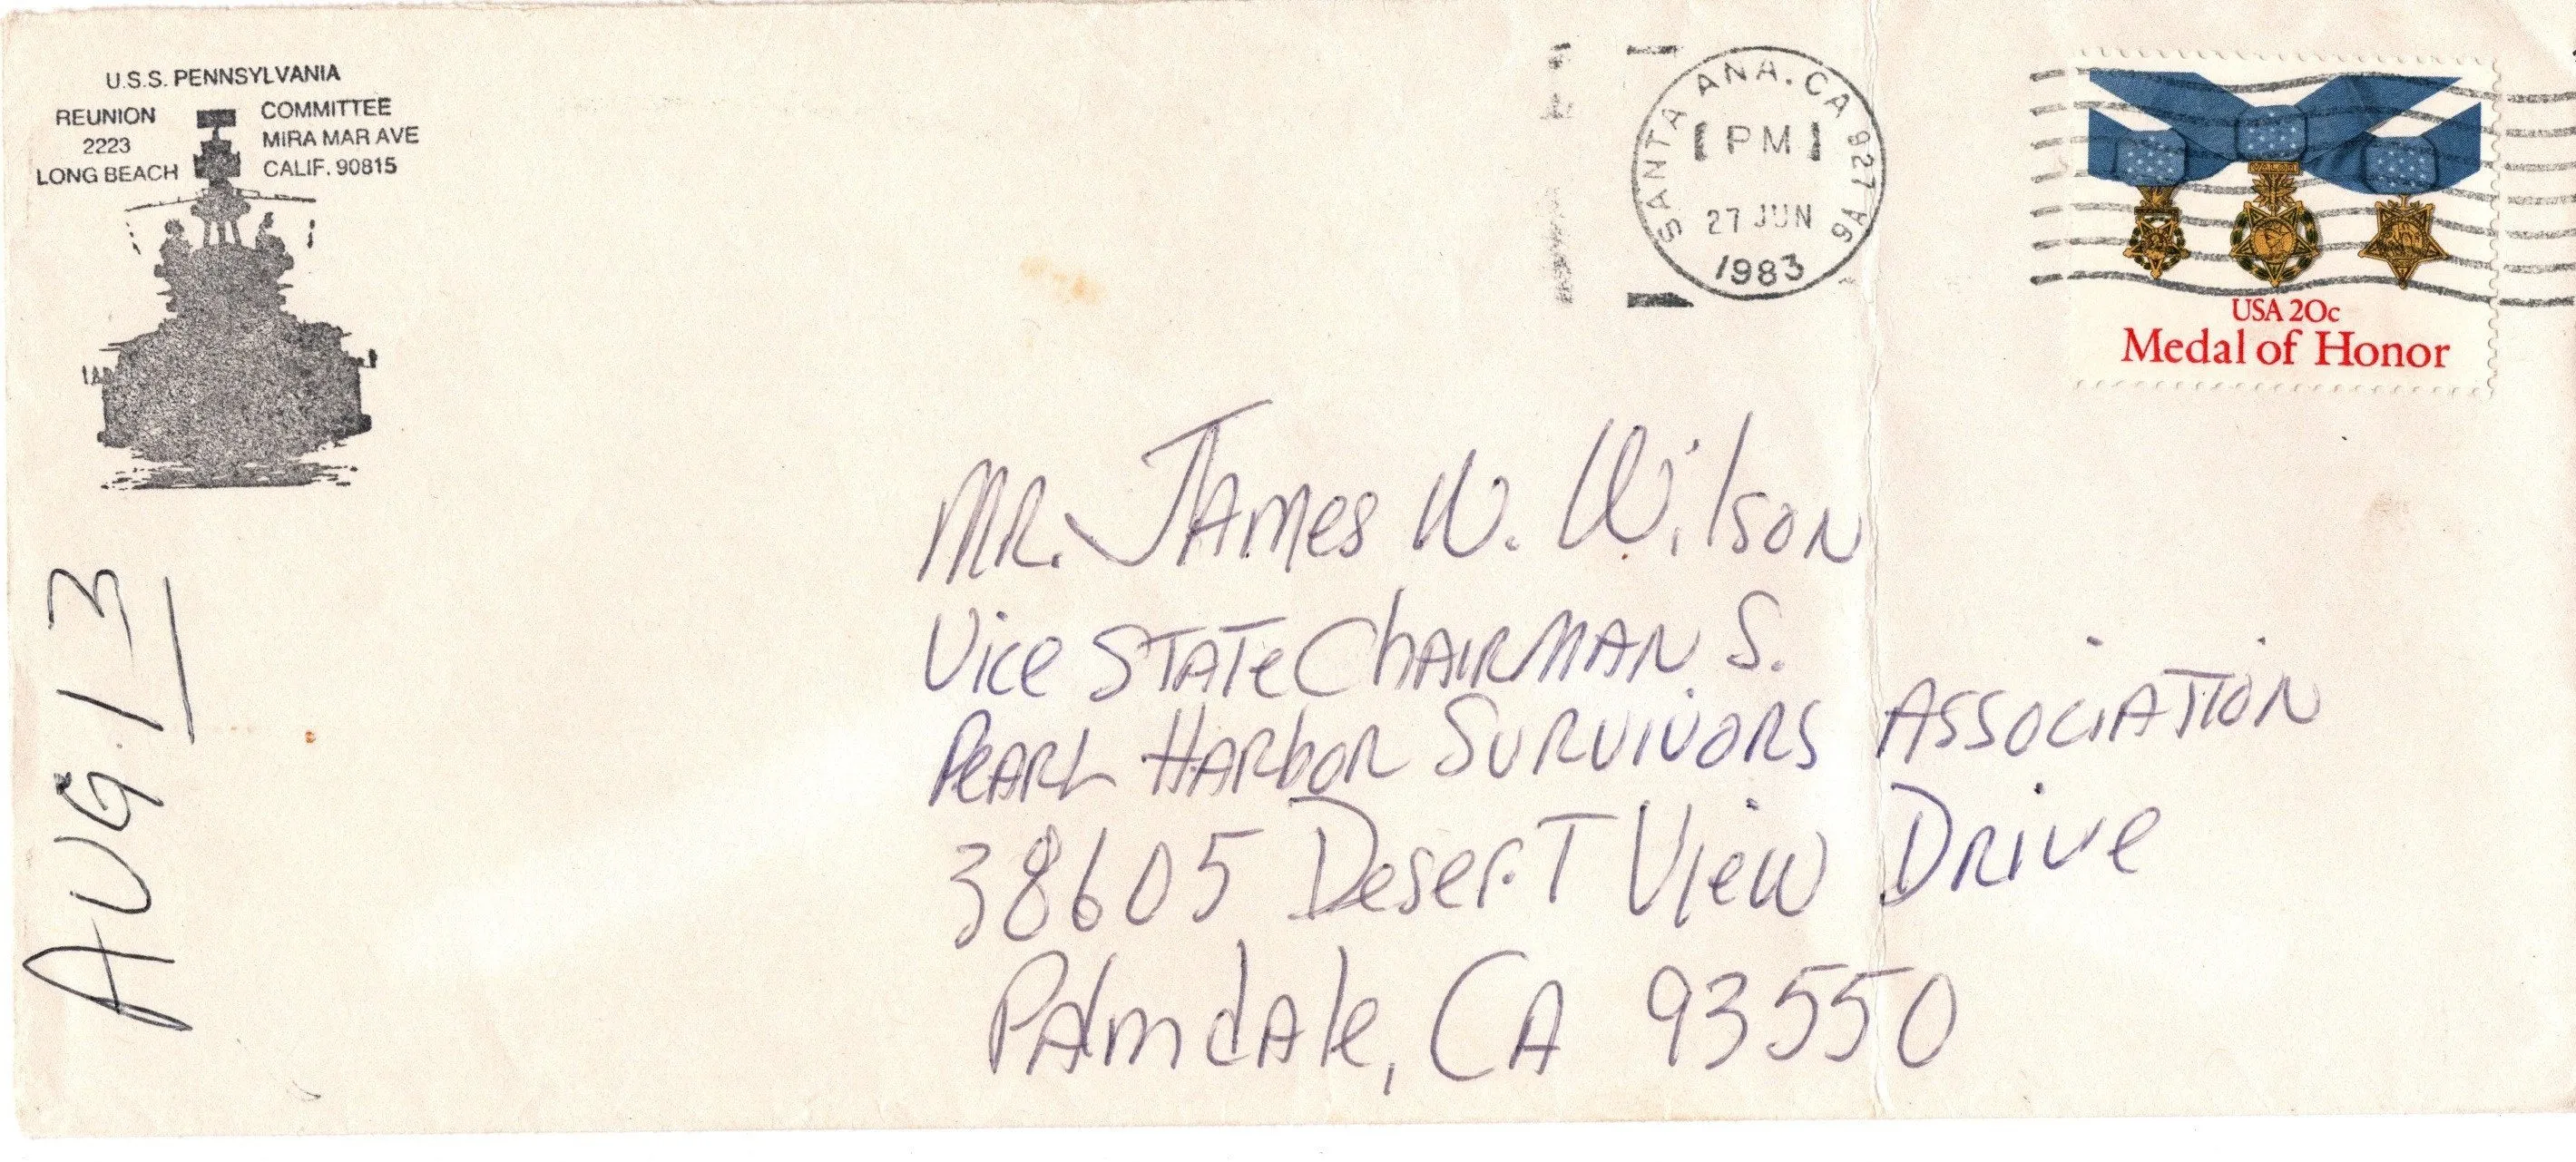 U.S.S. PENNSYLVANIA
REUNION COMMITTEE
2223 MIRA MAR AVE
LONG BEACH CALIF. 90815
SANTA ANA. CA 927
PM
27 JUN
1983
USA 20c
Medal of Honor
MR. JAMES W. WILSON
Vice STATE CHAIRMAN S.
PEARL HARBOR SURVIVORS ASSOCIATION
38605 Desert View Drive
Palmdale, CA 93550
AUG. 13